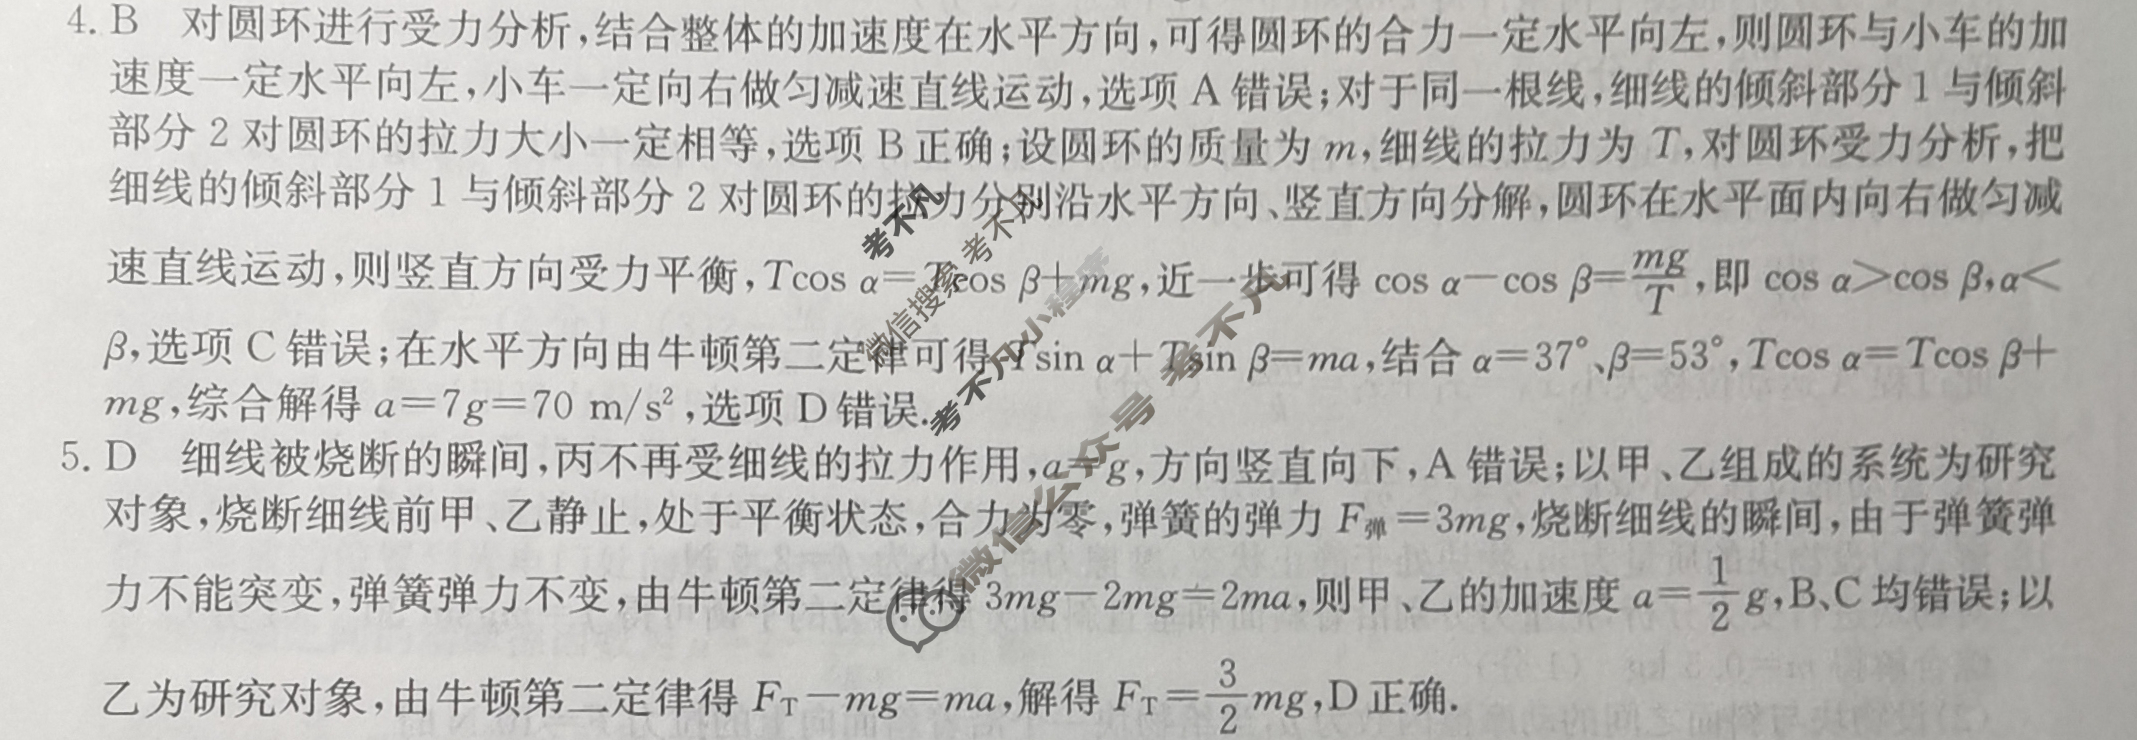 4. B 对圆环进行受力分析,结合整体的加速度在水平方向,可得圆环的合力一定水平向左,则圆环与小车的加
速度一定水平向左,小车一定向右做匀减速直线运动,选项 A 错误;对于同一根线,细线的倾斜部分 1 与倾斜
部分 2 对圆环的拉力大小一定相等,选项 B 正确;设圆环的质量为 m,细线的拉力为 T,对圆环受力分析,把
细线的倾斜部分 1 与倾斜部分 2 对圆环的拉力分别沿水平方向、竖直方向分解,圆环在水平面内向右做匀减
速直线运动,则竖直方向受力平衡,Tcos α=Tcos β+mg,近一步可得 cos α−cos β=mg/T,即 cos α>cos β,α<
β,选项 C 错误;在水平方向由牛顿第二定律可得 Tsin α+Tsin β=ma,结合 α=37°、β=53°,Tcos α=Tcos β+
mg,综合解得 a=7g=70 m/s²,选项 D 错误.
5. D 细线被烧断的瞬间,丙不再受细线的拉力作用,a=g,方向竖直向下,A 错误;以甲、乙组成的系统为研究
对象,烧断细线前甲、乙静止,处于平衡状态,合力为零,弹簧的弹力 F弹=3mg,烧断细线的瞬间,由于弹簧弹
力不能突变,弹簧弹力不变,由牛顿第二定律得 3mg−2mg=2ma,则甲、乙的加速度 a=1/2 g,B、C 均错误;以
乙为研究对象,由牛顿第二定律得 F_T−mg=ma,解得 F_T=3/2 mg,D 正确.
考不凡
微信搜索 考不凡
考不凡小程序
微信公众号 考不凡